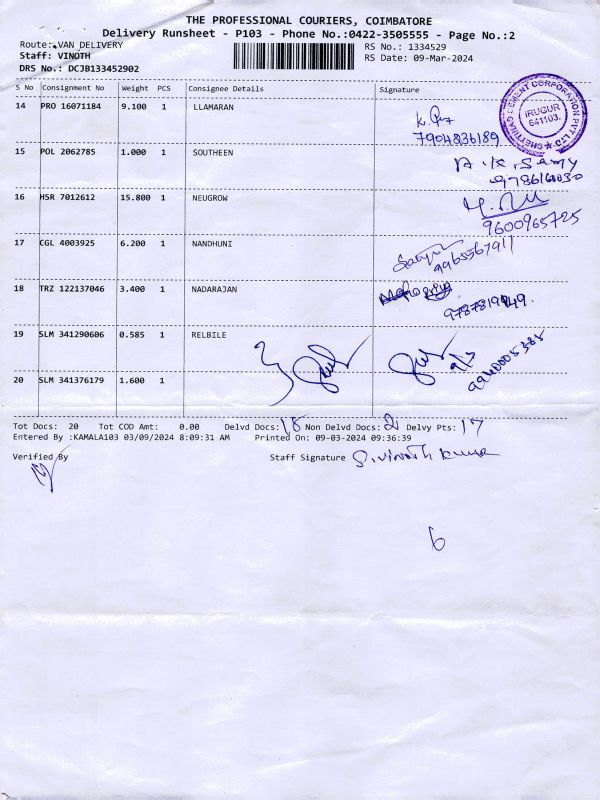 THE PROFESSIONAL COURIERS, COIMBATORE
Delivery Runsheet - P103 - Phone No.:0422-3505555 - Page No.:2
Route: VAN DELIVERY
RS No.: 1334529
Staff: VINOTH
RS Date: 09-Mar-2024
DRS No.: DCJB133452902
S No Consignment No Weight PCS Consignee Details Signature
CHETTINAD CEMENT CORPORATION PVT LTD
IRUGUR
641103.
14 PRO 16071184 9.100 1 LLAMARAN
7904836189
15 POL 2062785 1.000 1 SOUTHEEN
A.K. Samy
16 HSR 7012612 15.800 1 NEUGROW
9600965725
17 CGL 4003925 6.200 1 NANDHUNI
9965567911
18 TRZ 122137046 3.400 1 NADARAJAN
19 SLM 341290606 0.585 1 RELBILE
9940005385
20 SLM 341376179 1.600 1
Tot Docs: 20 Tot COD Amt: 0.00 Delvd Docs: 18 Non Delvd Docs: 2 Delvy Pts: 17
Entered By :KAMALA103 03/09/2024 8:09:31 AM Printed On: 09-03-2024 09:36:39
Verified By Staff Signature S.Vinoth Kumar
6